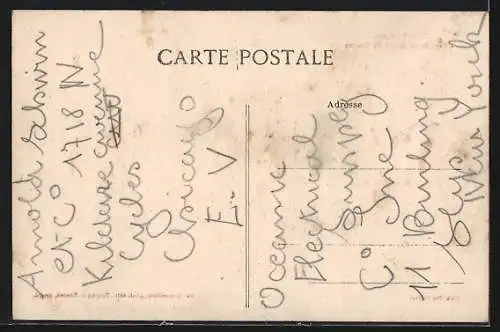 CARTE POSTALE
Adresse
Arnold Schwinn
et Co 1718 N
Kildare Avenue
Cycles
Chicago
E-V
Oceanic
Electrical
Supply
Co Inc
11 Burling
Slip
New York